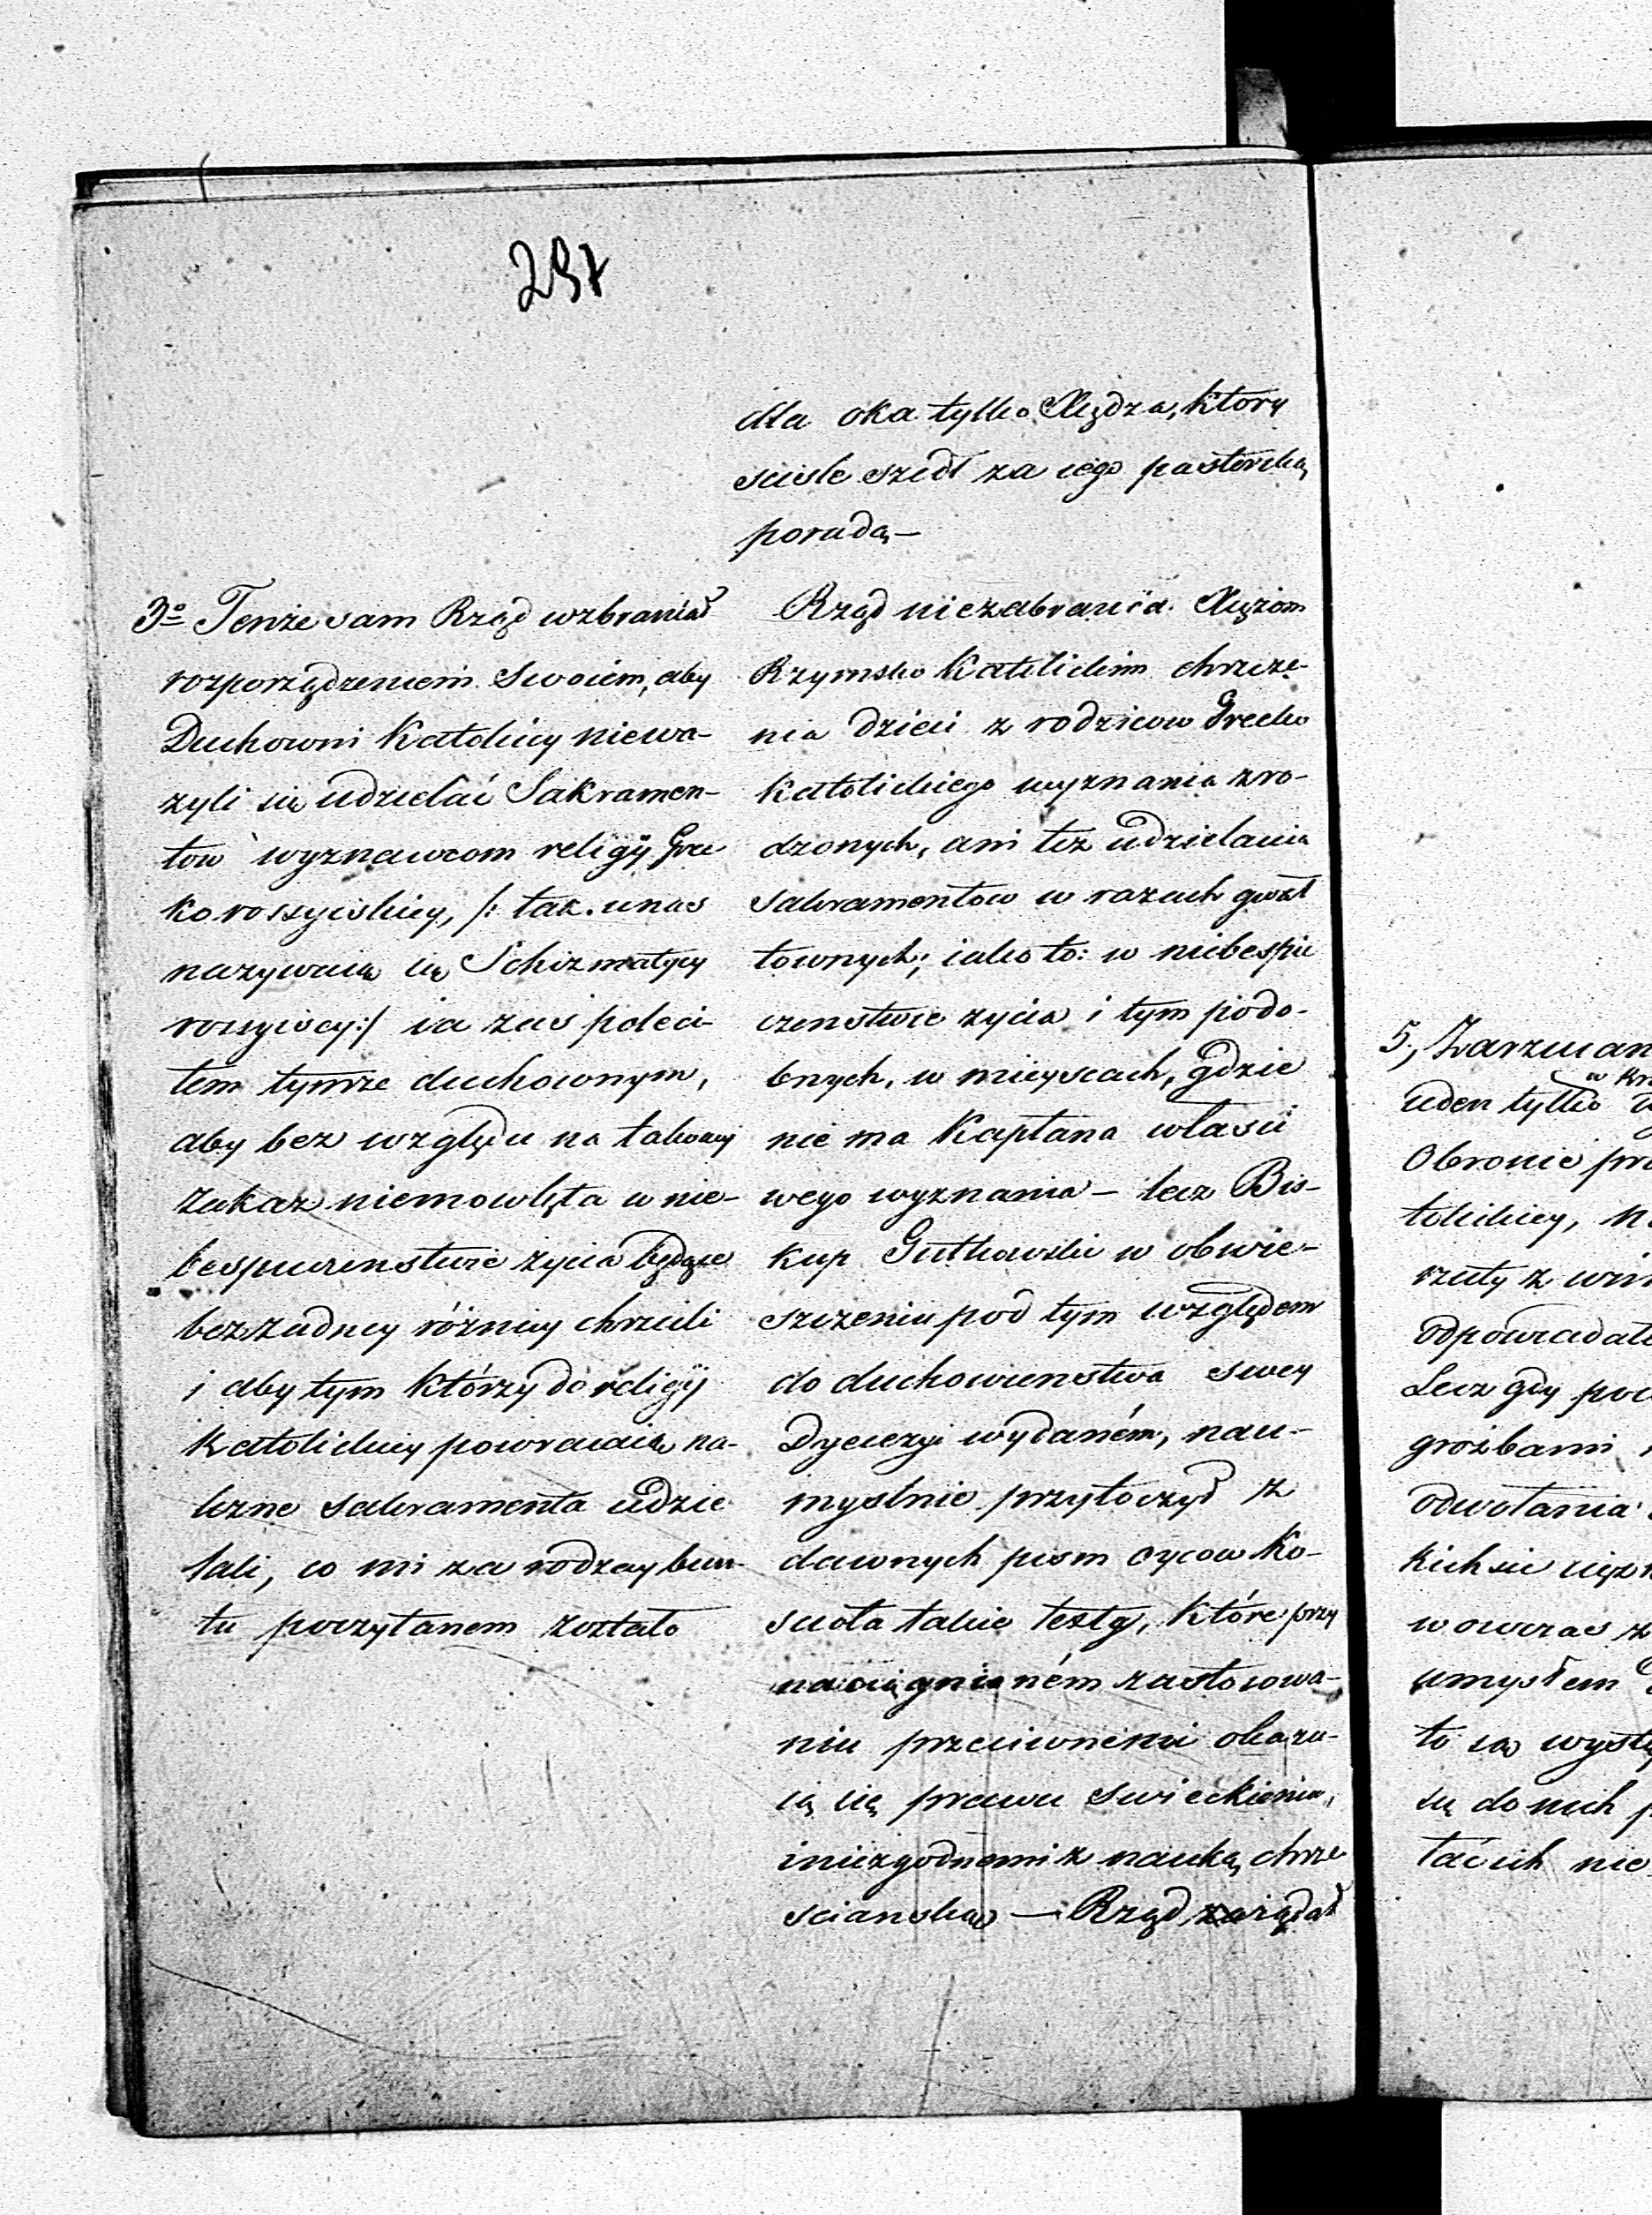 297
dla oka tylko Xiędza, ktory
scisle szedł za iego pasterską
poradą —
3o Tenże sam Rząd wzbraniał
rozporządzeniem Swoiem, aby
Duchowni Katoliccy niewa-
zyli się udzielać Sakramen-
tow wyznawcom religij Gre
ko rossyiskiey, /: tak unas
nazywaią się Schizmatycy
rossyiscy:/ ia zaś poleci-
łem tymże duchownym,
aby bez względu na takowy
Zakaz niemowlęta w nie-
bespieczenstwie życia będące
bez żadney różnicy chrzcili
i aby tym którzy do religij
Katolickiey powracaią na-
leżne sakramenta udzie
lali, co mi za rodzay bun-
tu poczytanem zostało
Rząd niezabrania Xiężom
Rzymsko Katolickim chrzcze-
nia dzieci z rodzicow Grecko
katolickiego wyznania zro-
dzonych, ani też udzielania
sakramentow w razach gwał
townych; iako to: w niebespie
czenstwie zycia i tym podo-
bnych, w mieyscach, gdzie
nie ma Kapłana właści
wego wyznania — lecz Bis-
kup Gutkowski w obwie-
szczeniu pod tym względem
do duchowienstwa swey
Dyecezyi wydaném, nau-
myslnie przytoczył z
dawnych pism oycow Ko-
scioła takie texty, które przy
naciągnioném zastosowa-
niu przeciwnemi okazu-
ią się prawu swieckiemu,
i niezgodnemi z nauką chrze
scianską — Rząd zażądał
5, Zarzucan
w Kr
ieden tylko
Obronie pra
tolickiey, n
rzuty z win
odpowiadał
Lecz gdy po
groźbami
odwołania
kich się
wowczas z
umysłem
to są wystę
się do nich p
tać ich nie